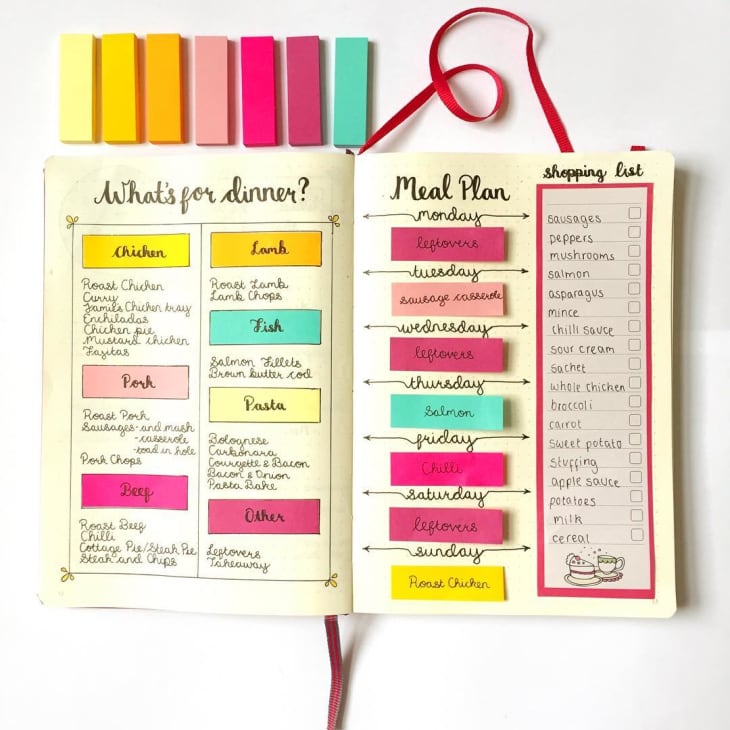 What's for dinner?
Chicken
Roast Chicken
Curry
Jamie's Chicken tray
Enchiladas
Chicken pie
Mustard chicken
Fajitas
Pork
Roast Pork
Sausages - and mash
- casserole
- toad in hole
Pork Chops
Beef
Roast Beef
Chilli
Cottage Pie/Steak Pie
Steak and Chips
Lamb
Roast Lamb
Lamb Chops
Fish
Salmon Fillets
Brown butter cod
Pasta
Bolognese
Carbonara
Courgette & Bacon
Bacon & Onion
Pasta Bake
Other
Leftovers
Takeaway
Meal Plan
monday
leftovers
tuesday
sausage casserole
wednesday
leftovers
thursday
Salmon
friday
Chilli
saturday
leftovers
sunday
Roast Chicken
shopping list
sausages
peppers
mushrooms
salmon
asparagus
mince
chilli sauce
sour cream
sachet
whole chicken
broccoli
carrot
sweet potato
stuffing
apple sauce
potatoes
milk
cereal